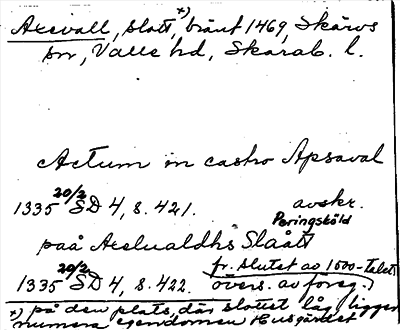 Axevall, slott, bränt 1469, Skärvs *)
sn, Valle hd, Skarab. l.
Actum in castro Apsaval
1335 20/2 SD 4, s. 421. avskr.
Peringsköld
paå Axelualdhs Slåått
1335 20/2 SD 4, s. 422. fr. slutet av 1500-talet
övers. av föreg.)
*) på den plats, där slottet låg ligger
numera egendomen Husgärdet